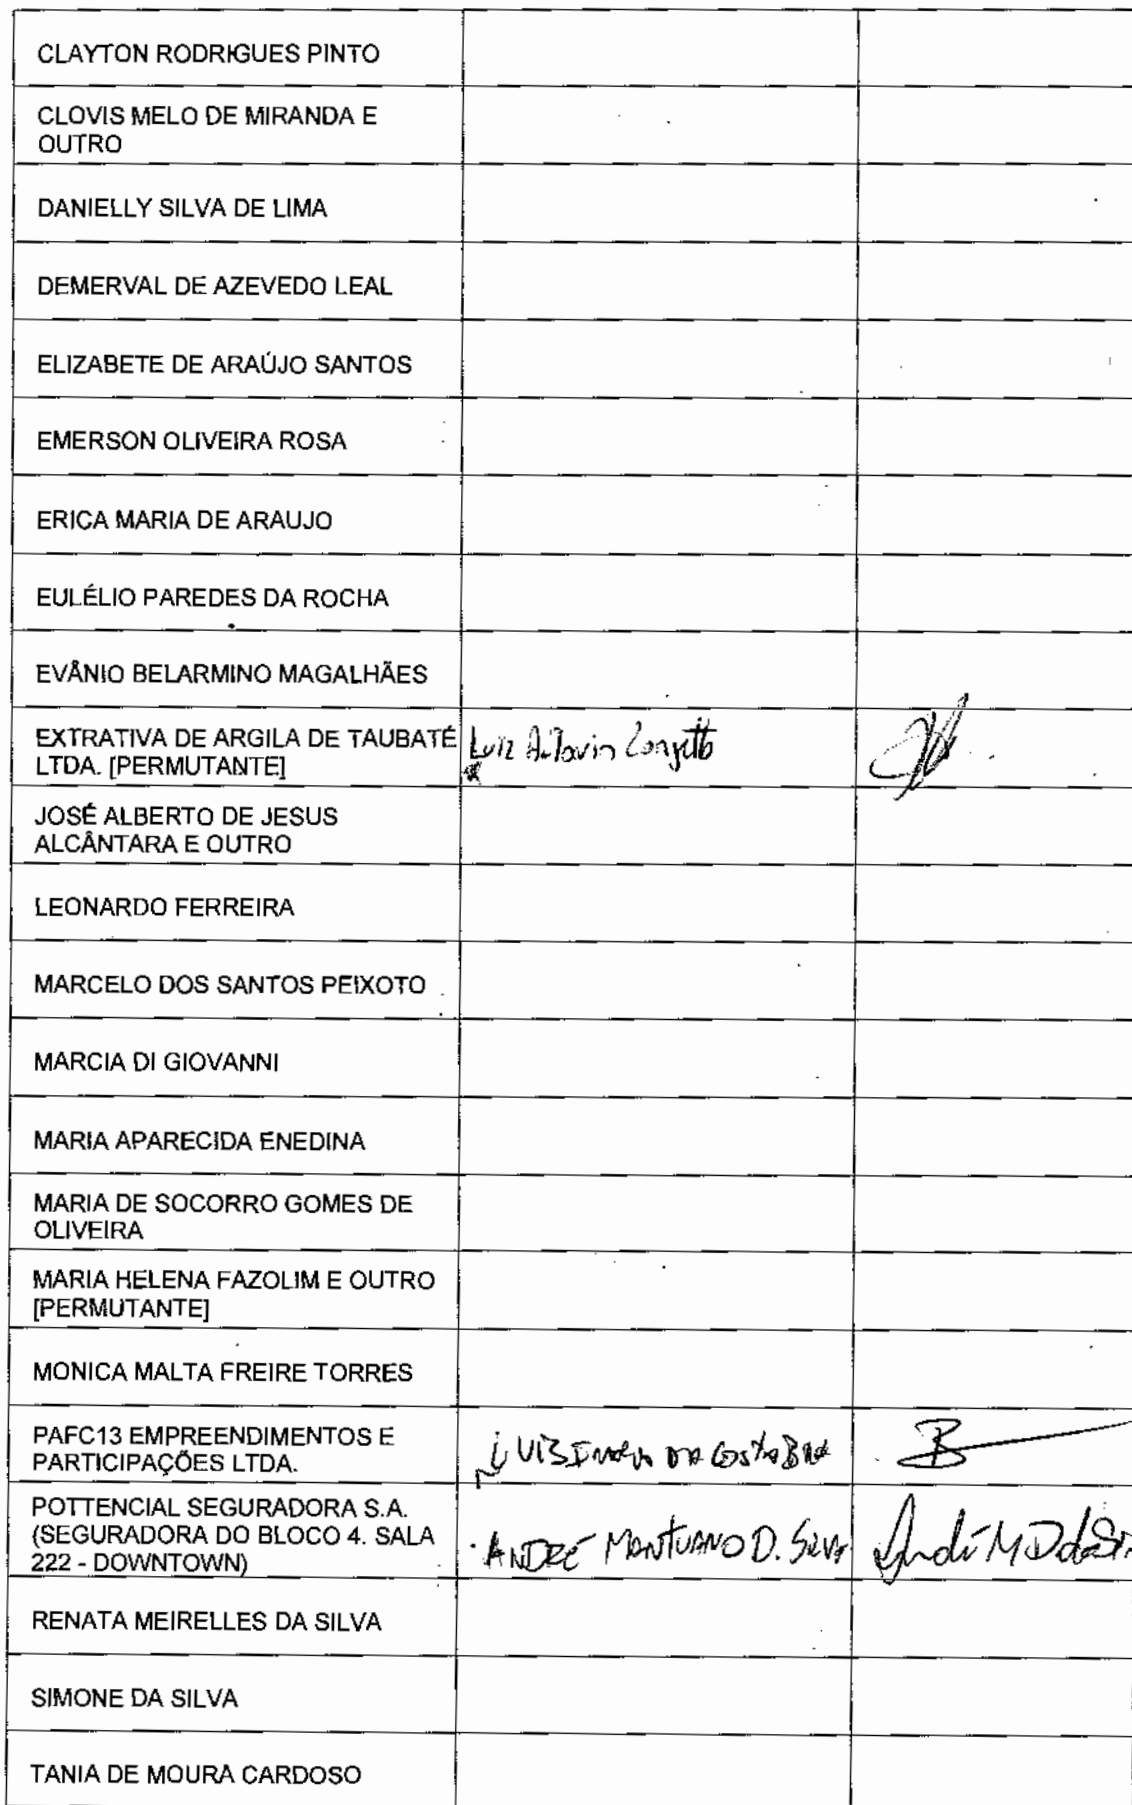 CLAYTON RODRIGUES PINTO
CLOVIS MELO DE MIRANDA E
OUTRO
DANIELLY SILVA DE LIMA
DEMERVAL DE AZEVEDO LEAL
ELIZABETE DE ARAÚJO SANTOS
EMERSON OLIVEIRA ROSA
ERICA MARIA DE ARAUJO
EULÉLIO PAREDES DA ROCHA
EVÂNIO BELARMINO MAGALHÃES
EXTRATIVA DE ARGILA DE TAUBATÉ
LTDA. [PERMUTANTE]
Luiz
JOSÉ ALBERTO DE JESUS
ALCÂNTARA E OUTRO
LEONARDO FERREIRA
MARCELO DOS SANTOS PEIXOTO
MARCIA DI GIOVANNI
MARIA APARECIDA ENEDINA
MARIA DE SOCORRO GOMES DE
OLIVEIRA
MARIA HELENA FAZOLIM E OUTRO
[PERMUTANTE]
MONICA MALTA FREIRE TORRES
PAFC13 EMPREENDIMENTOS E
PARTICIPAÇÕES LTDA.
LUIS DA COSTA
POTTENCIAL SEGURADORA S.A.
(SEGURADORA DO BLOCO 4. SALA
222 - DOWNTOWN)
ANDRÉ MANTUANO D. SILVA
RENATA MEIRELLES DA SILVA
SIMONE DA SILVA
TANIA DE MOURA CARDOSO